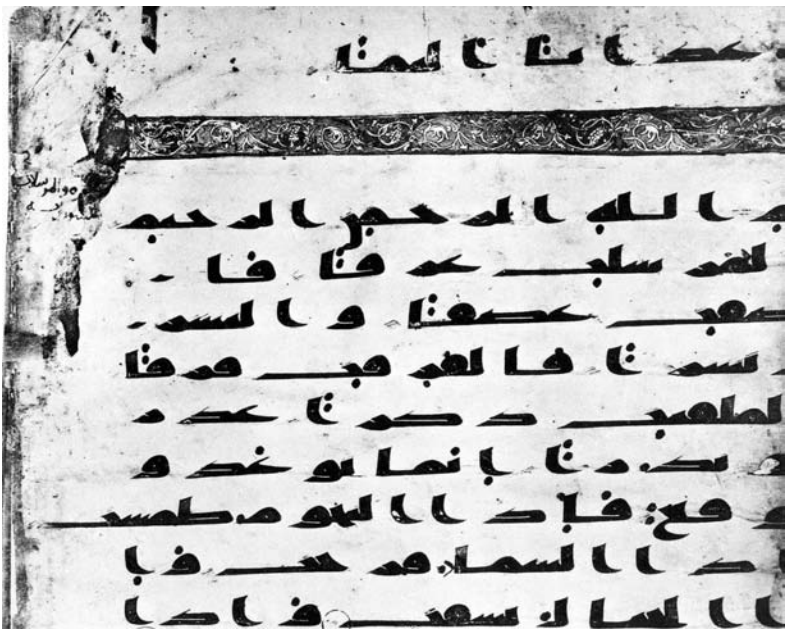 عذابا اليما
والمرسلات
الله الرحمن الرحيم
المرسلت عرفا فا
صفت عصفا والنشر
ت نشرا فالفرقت فرقا
الملقيت ذكرا عذرا
و نذرا انما توعدو
وقع فاذا النجوم طمست
ذا السما فرجت وا
ا الجبال نسفت واذا